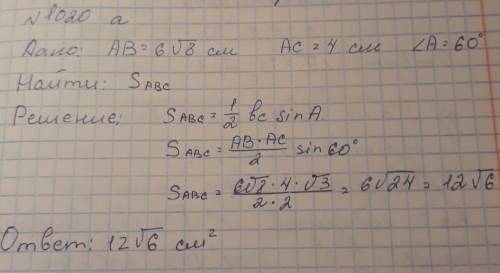 №1020 а
Дано: AB = 6√8 см AC = 4 см ∠A = 60°
Найти: S_ABC
Решение: S_ABC = 1/2 bc sin A.
S_ABC = (AB · AC)/2 sin 60°
S_ABC = (6√8 · 4 · √3)/(2 · 2) = 6√24 = 12√6
Ответ: 12√6 см²